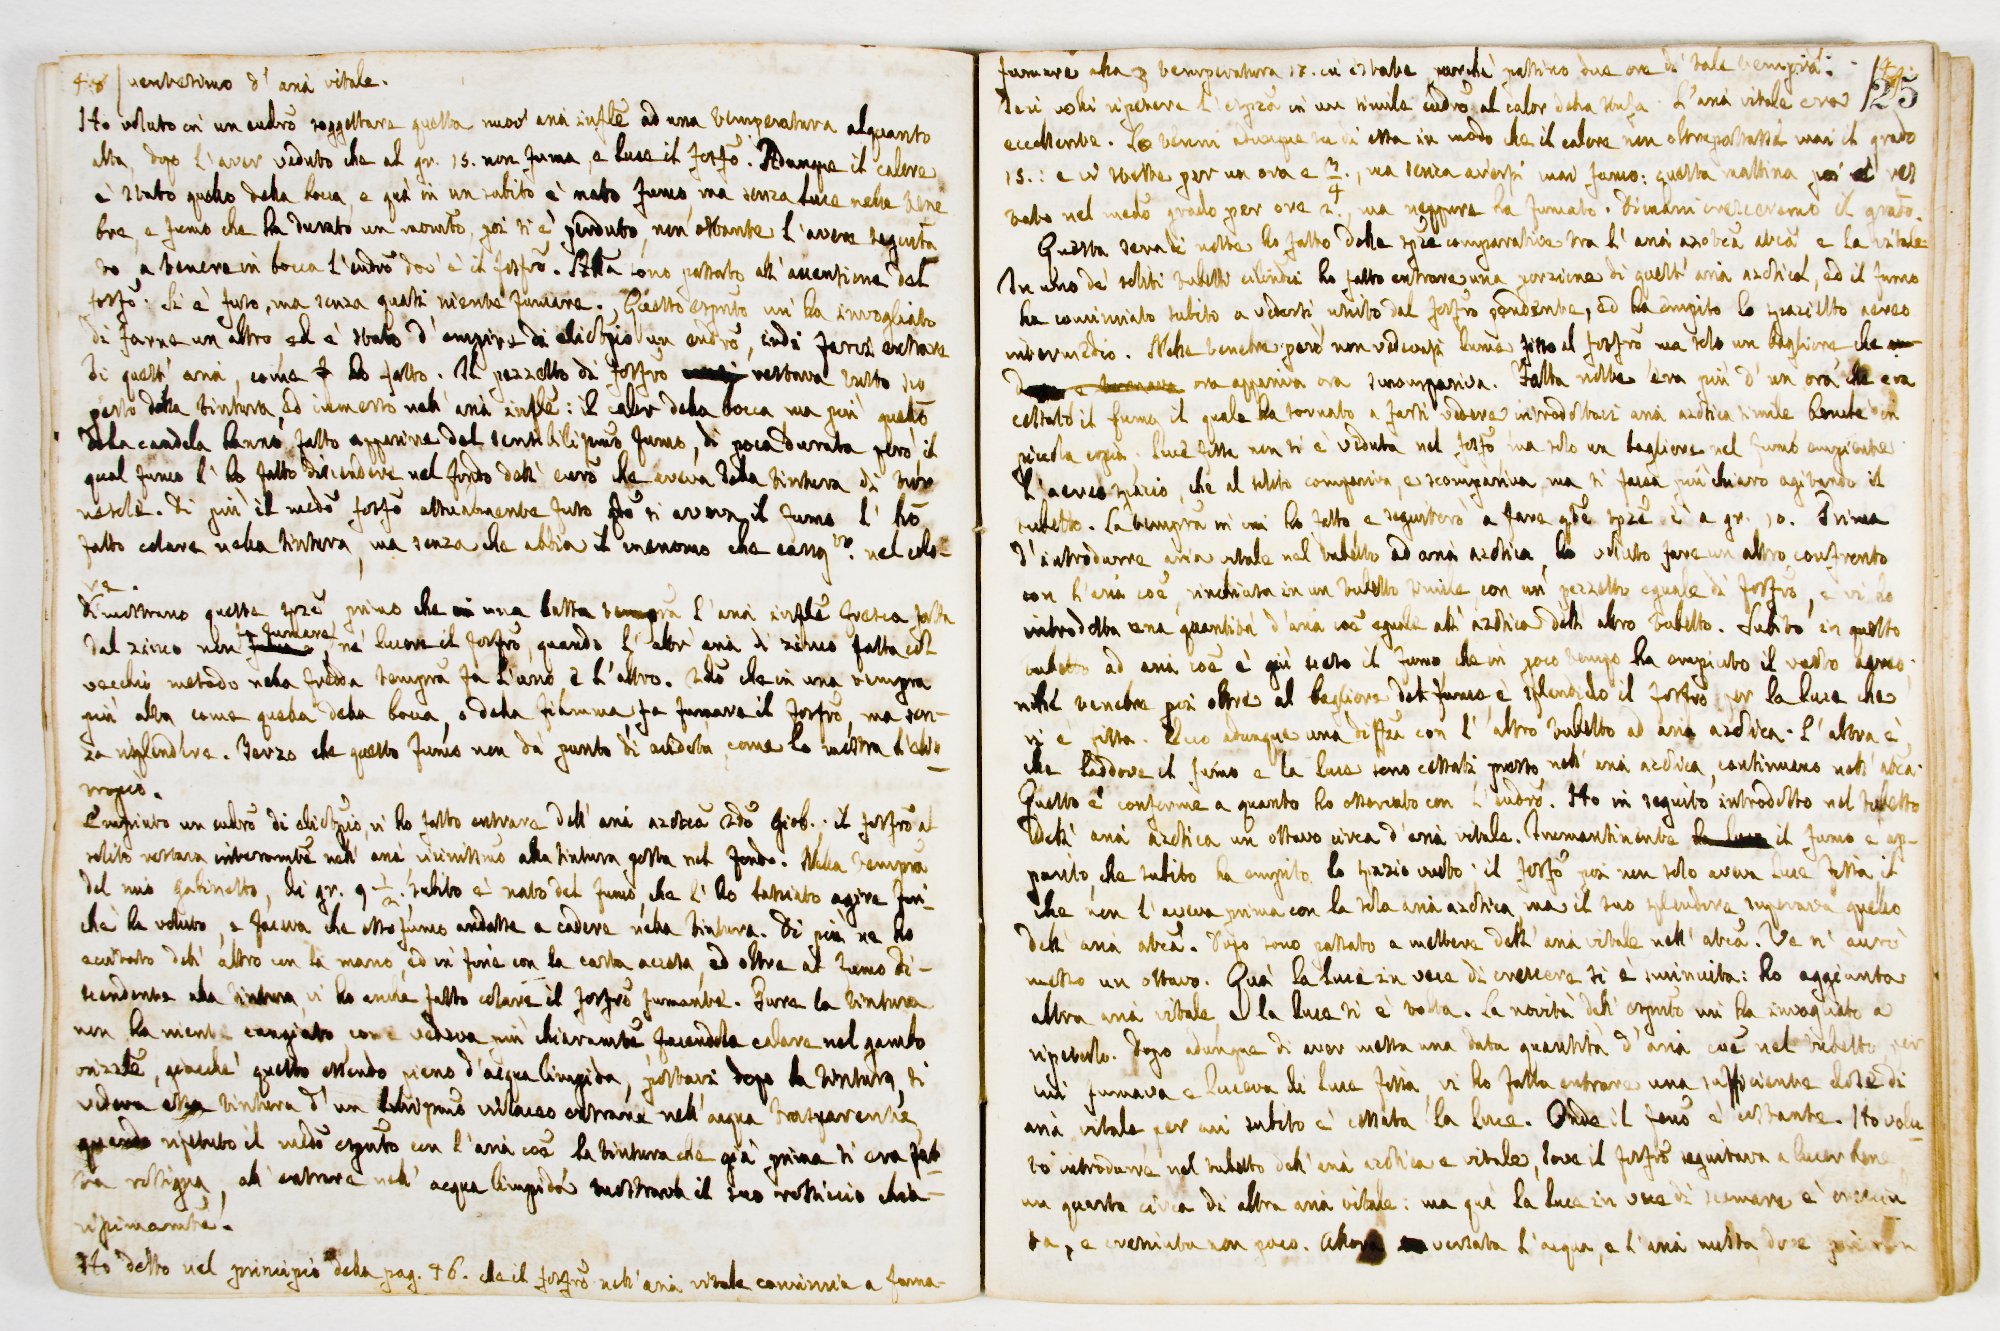 48 ventesimo d'aria vitale.
Ho voluto in un eudro soggettare questa nuov' aria infle ad una temperatura alquanto
alta, dopo l'aver veduto che al gr. 15. non fuma, e luce il fosfo. Adunque il calore
è stato quello della bocca, e quì in un subito è nato fumo ma senza luce nelle tene
bre, e fumo che ha durato un momto, poi si è perduto, non ostante l'avere seguita
to a tenere in bocca l'eudro dov' è il fosfro. Allora sono passato all' accensione del
fosfo: Si è fuso, ma senza quasi niente fumare. Questo esprito mi ha invogliato
di farne un altro ed è stato d'empire di elictpio un eudro, indi farci entrare
di quest' aria, come ho fatto. Il pezzetto di fosfro restava tutto sco
perto dalla tintura ed immerso nell' aria infle: il calor della bocca ma più quello
della candela hanno fatto apparire del sensibilissimo fumo, di poca durata però il
qual fumo l' ho fatto discendere nel fondo dell' euro che aveva della tintura di tor
nesole. Di più il medo fosfo attualmente fuso si aveva il fumo l' ho
fatto colare nella tintura, ma senza che abbia il menomo che cangto nel colo-
re.
Dimostrano queste spze primo che in una bassa tempra l'aria infle fresca fatta
dal zinco non fa fumare, nè lucere il fosfro, quando l' altr' aria di zinco fatta col
vecchio metodo nella fredda tempra fa l'uno e l'altro. 2do che in una tempra
più alta come quella della bocca, o della fiamma fa fumare il fosfro, ma sen-
za risplendere. Terzo che questo fumo non dà punto di acidità, come lo mostra l'eli-
tropio.
Empiuto un eudro di elictpio, vi ho fatto entrare dell' aria azotca 2do Giob.: il fosfro al
solito restava interamte nell' aria vicinissimo alla tintura posta nel fondo. Nella tempra
del mio gabinetto, di gr. 9 1/2. subito è nato del fumo, che l' ho lasciato agire fin-
chè ha voluto, e faceva che esso fumo andasse a cadere nella tintura. Di più ne ho
eccitato dell' altro con la mano, ed in fine con la carta accesa, ed oltre al fumo di-
scendente alla tintura vi ho anche fatto colare il fosfro fumante. Pure la tintura
non ha niente cangiato come vedeva più chiaramte facendola calare nel gambo
orizzle, giacchè questo essendo pieno d'acqua limpida, portavi dopo la tintura, si
vedeva essa tintura d'un bellissimo violaceo entrare nell' acqua trasparente,
quando ripetuto il medo esprto con l'aria coe la tintura che già prima si era fat-
ta rossigna, all' entrare nell' acqua limpida mostrava il suo rossiccio chia-
rissimamte.
Ho detto nel principio della pag. 46. che il fosfro nell' aria vitale comincia a fuma-
125
fumare alla temperatura 17. in estate, purchè passino due ore di tale tempra:
Ieri volli ripetere l'espza in un simile eudro al calor della stufa. L'aria vitale era
eccellente. Lo tenni adunque in modo che il calore non oltrepassasse mai il grado
15.: e vi stette per un ora e 3/4., ma senza aversi mai fumo: questa mattina poi è res
tato nel medo grado per ore 2., ma neppure ha fumato. Dimani cresceremo il grado.
Questa sera di notte ho fatto delle spze comparative tra l' aria azotca atca e la vitale
In uno de' soliti tubetti cilindri ho fatto entrare una porzione di quest' aria azotica, ed il fumo
ha cominciato subito a vedersi uscito dal fosfro pendente, ed ha empito lo spazietto aereo
intermedio. Nelle tenebre però non vedevasi lume fisso al fosfro ma solo un bagliore che
ora appariva ora scompariva. Fatta notte era più d'un ora che era
cessato il fumo il quale ha tornato a farsi vedere introdottavi aria azotica simile benchè in
piccola copia. Luce fissa non si è veduta nel fosfo ma solo un bagliore nel fumo empiente
l'aereo spazio, che al solito compariva, e scompariva, ma si facea più chiaro agitando il
tubetto. La tempra in cui ho fatto e seguiterò a fare qste spze è a gr. 10. Prima
d'introdurre aria vitale nel tubetto ad aria azotica, ho voluto fare un altro confronto
con l'aria coe, rinchiusa in un tubetto simile con un pezzetto eguale di fosfro, e vi ho
introdotta una quantità d'aria coe eguale all' azotica dell' altro tubetto. Subito in questo
tubetto ad aria coe è già sceso il fumo che in poco tempo ha empiuto il vuoto aereo;
nelle tenebre poi oltre al bagliore del fumo, è splendido il fosfro per la luce che
vi è fissa. Ecco adunque una diffza con l' altro tubetto ad aria azotica. L' altra è
che laddove il fumo e la luce sono cessati presto nell' aria azotica, continuano nell' atca.
Questo è conforme a quanto ho osservato con l' eudro. Ho in seguito introdotto nel tubetto
dell' aria azotica un ottavo circa d'aria vitale. Inmantinente il fumo è ap-
parito, che subito ha empito lo spazio vuoto: il fosfo poi non solo aveva luce fissa il
che non l'aveva prima con la sola aria azotica, ma il suo splendore superava quello
dell' aria atca. Dopo sono passato a mettere dell' aria vitale nell' atca. Ve n' avrò
messo un ottavo. Quà la luce in vece di crescere si è sminuita: ho aggiunta
altra aria vitale, e la luce si è tolta. La novità dell' esprito mi ha invogliato a
ripeterlo. Dopo adunque di aver messa una data quantità d'aria coe nel tubetto, per
cui fumava e luceva di luce fissa, vi ho fatta entrare una sufficiente dose di
aria vitale, per cui subito è cessata la luce. Onde il feno è costante. Ho volu-
to introdurre nel tubetto dell' aria azotica e vitale, dove il fosfro seguitava a lucer bene
un quarto circa di altra aria vitale: ma quì la luce in vece di scemare è cresciu
ta, e cresciuta non poco. Allora versata l'acqua, e l'aria mista, dove